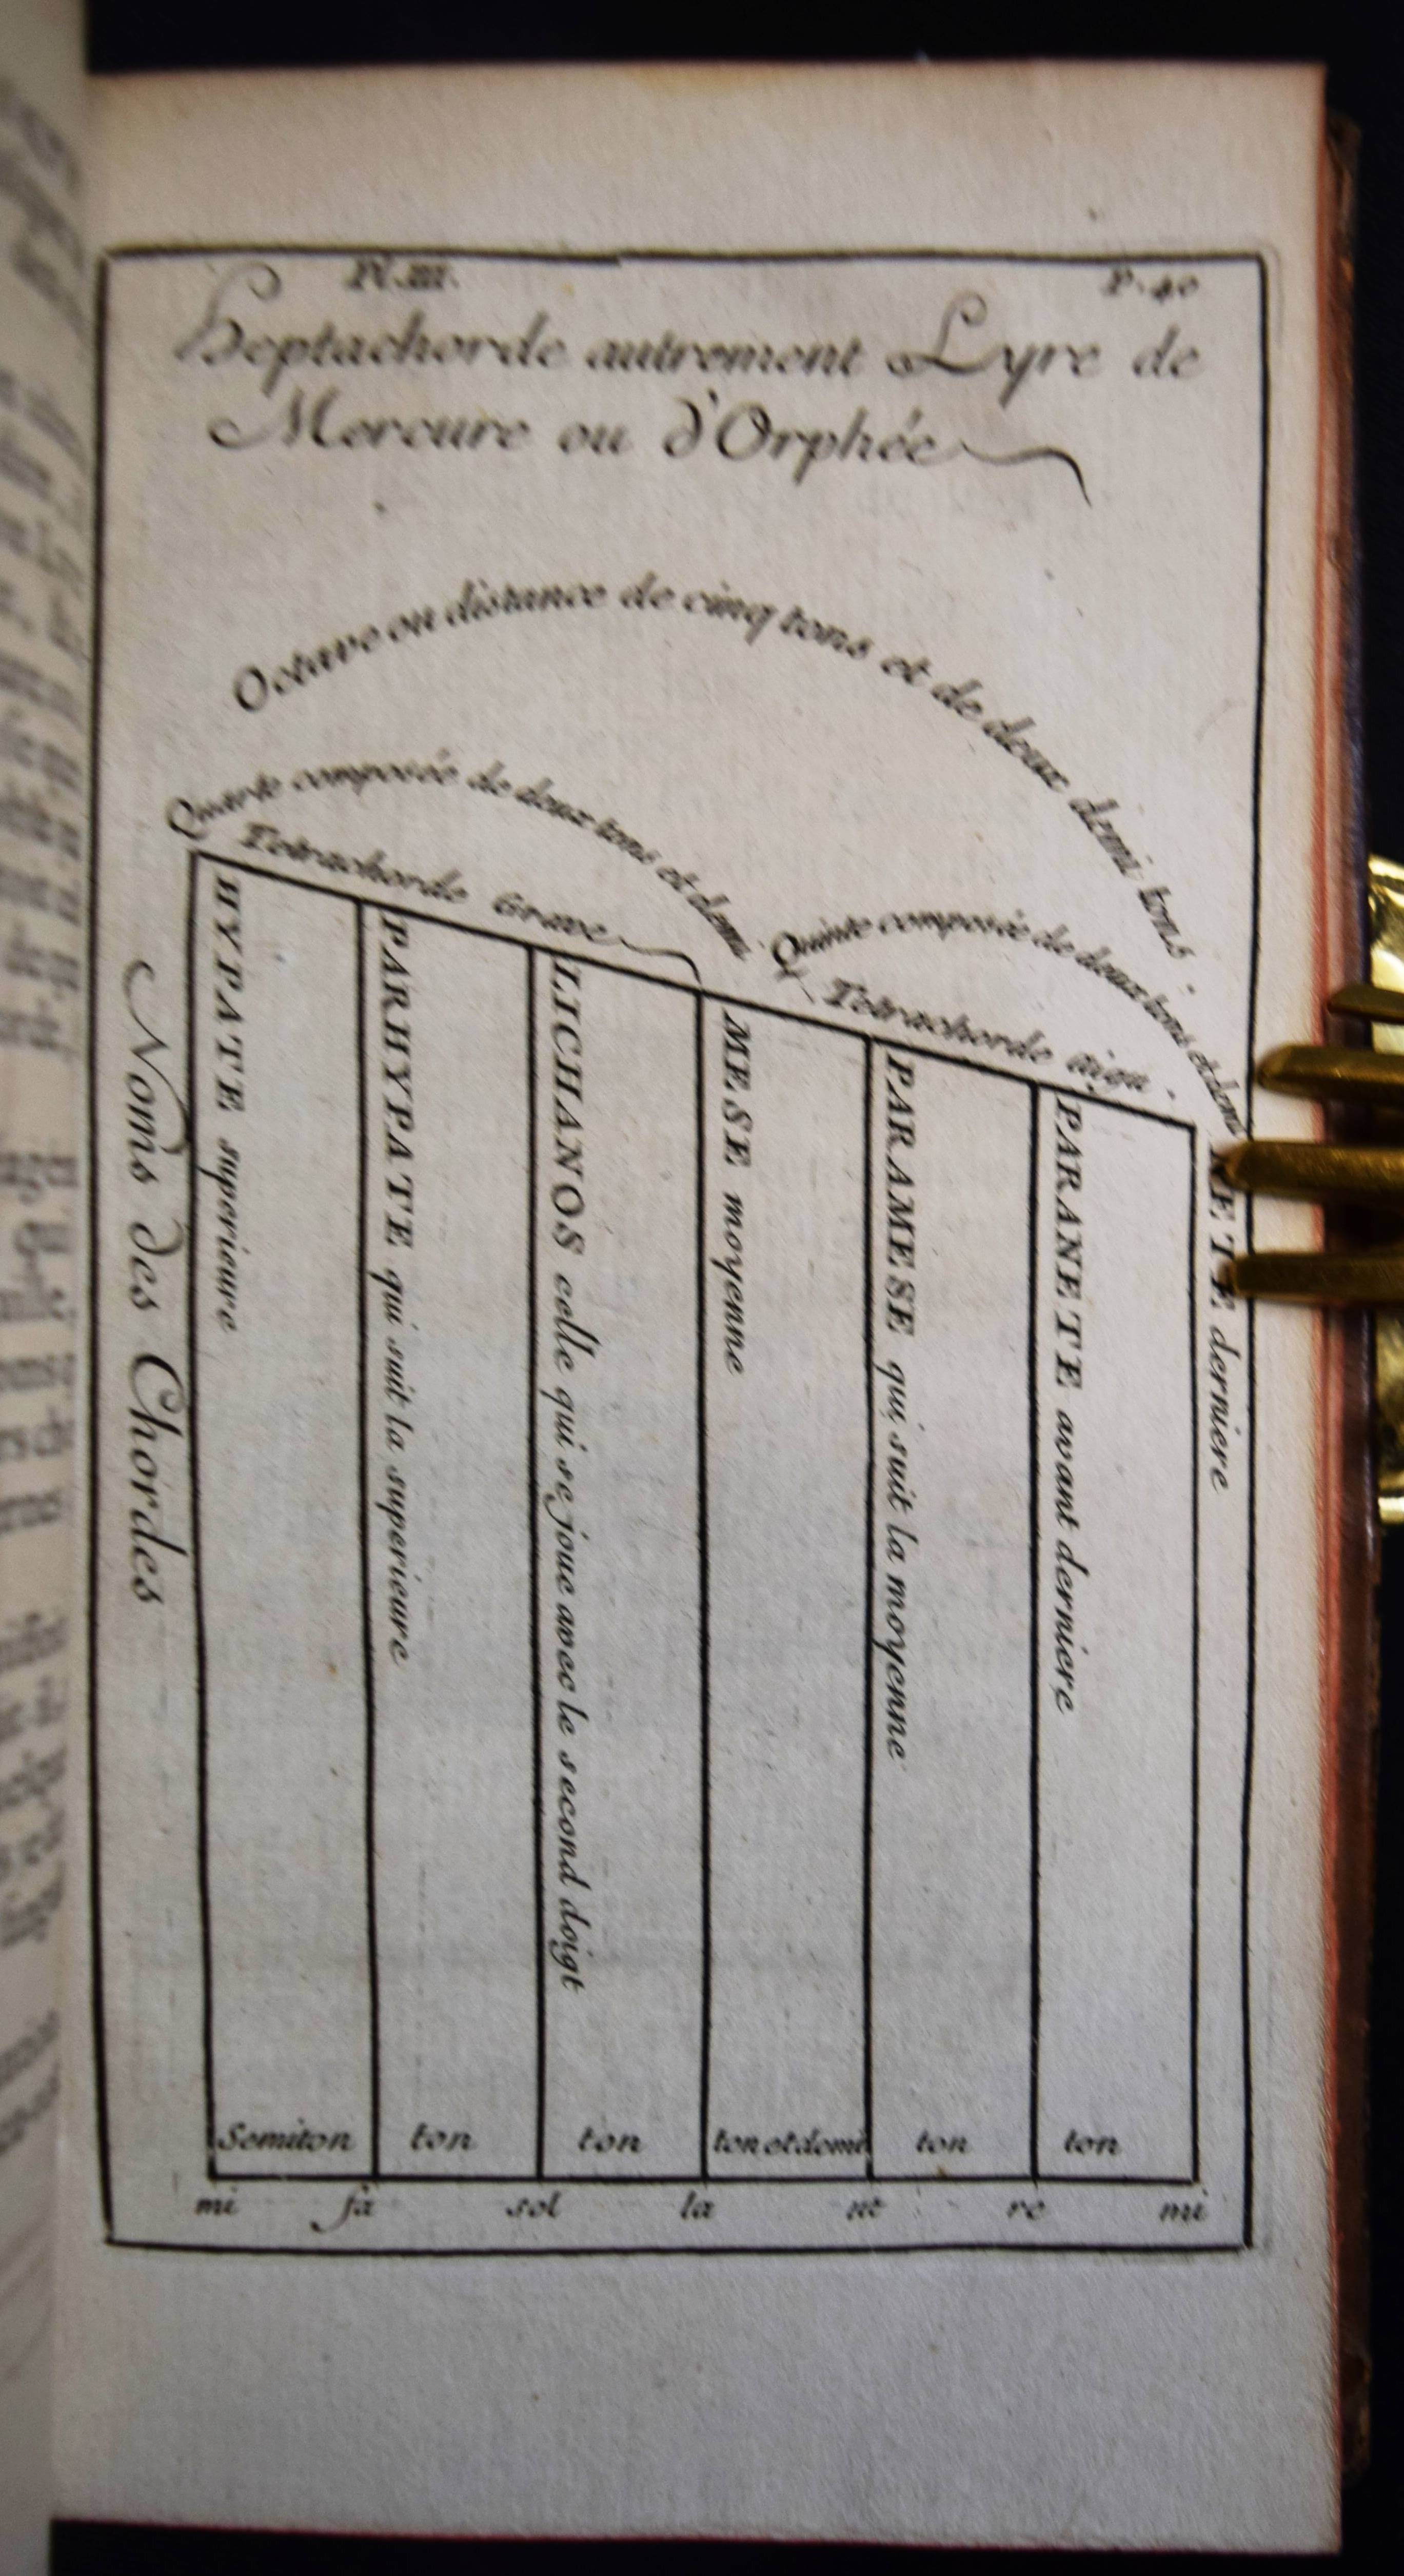 Pl. III.
P. 40
Heptachorde autrement Lyre de
Mercure ou d'Orphée
Octave ou distance de cinq tons et de deux demi tons.
Quarte composée de deux tons et demi
Tetrachorde Grave
Quinte composée de deux tons et demi
Tetrachorde aigu
Noms des Chordes
HYPATE superieure
PARHYPATE qui suit la superieure
LICHANOS celle qui se joue avec le second doigt
MESE moyenne
PARAMESE qui suit la moyenne
PARANETE avant derniere
NETE derniere
Semiton ton ton ton et demi ton ton
mi fa sol la ut re mi